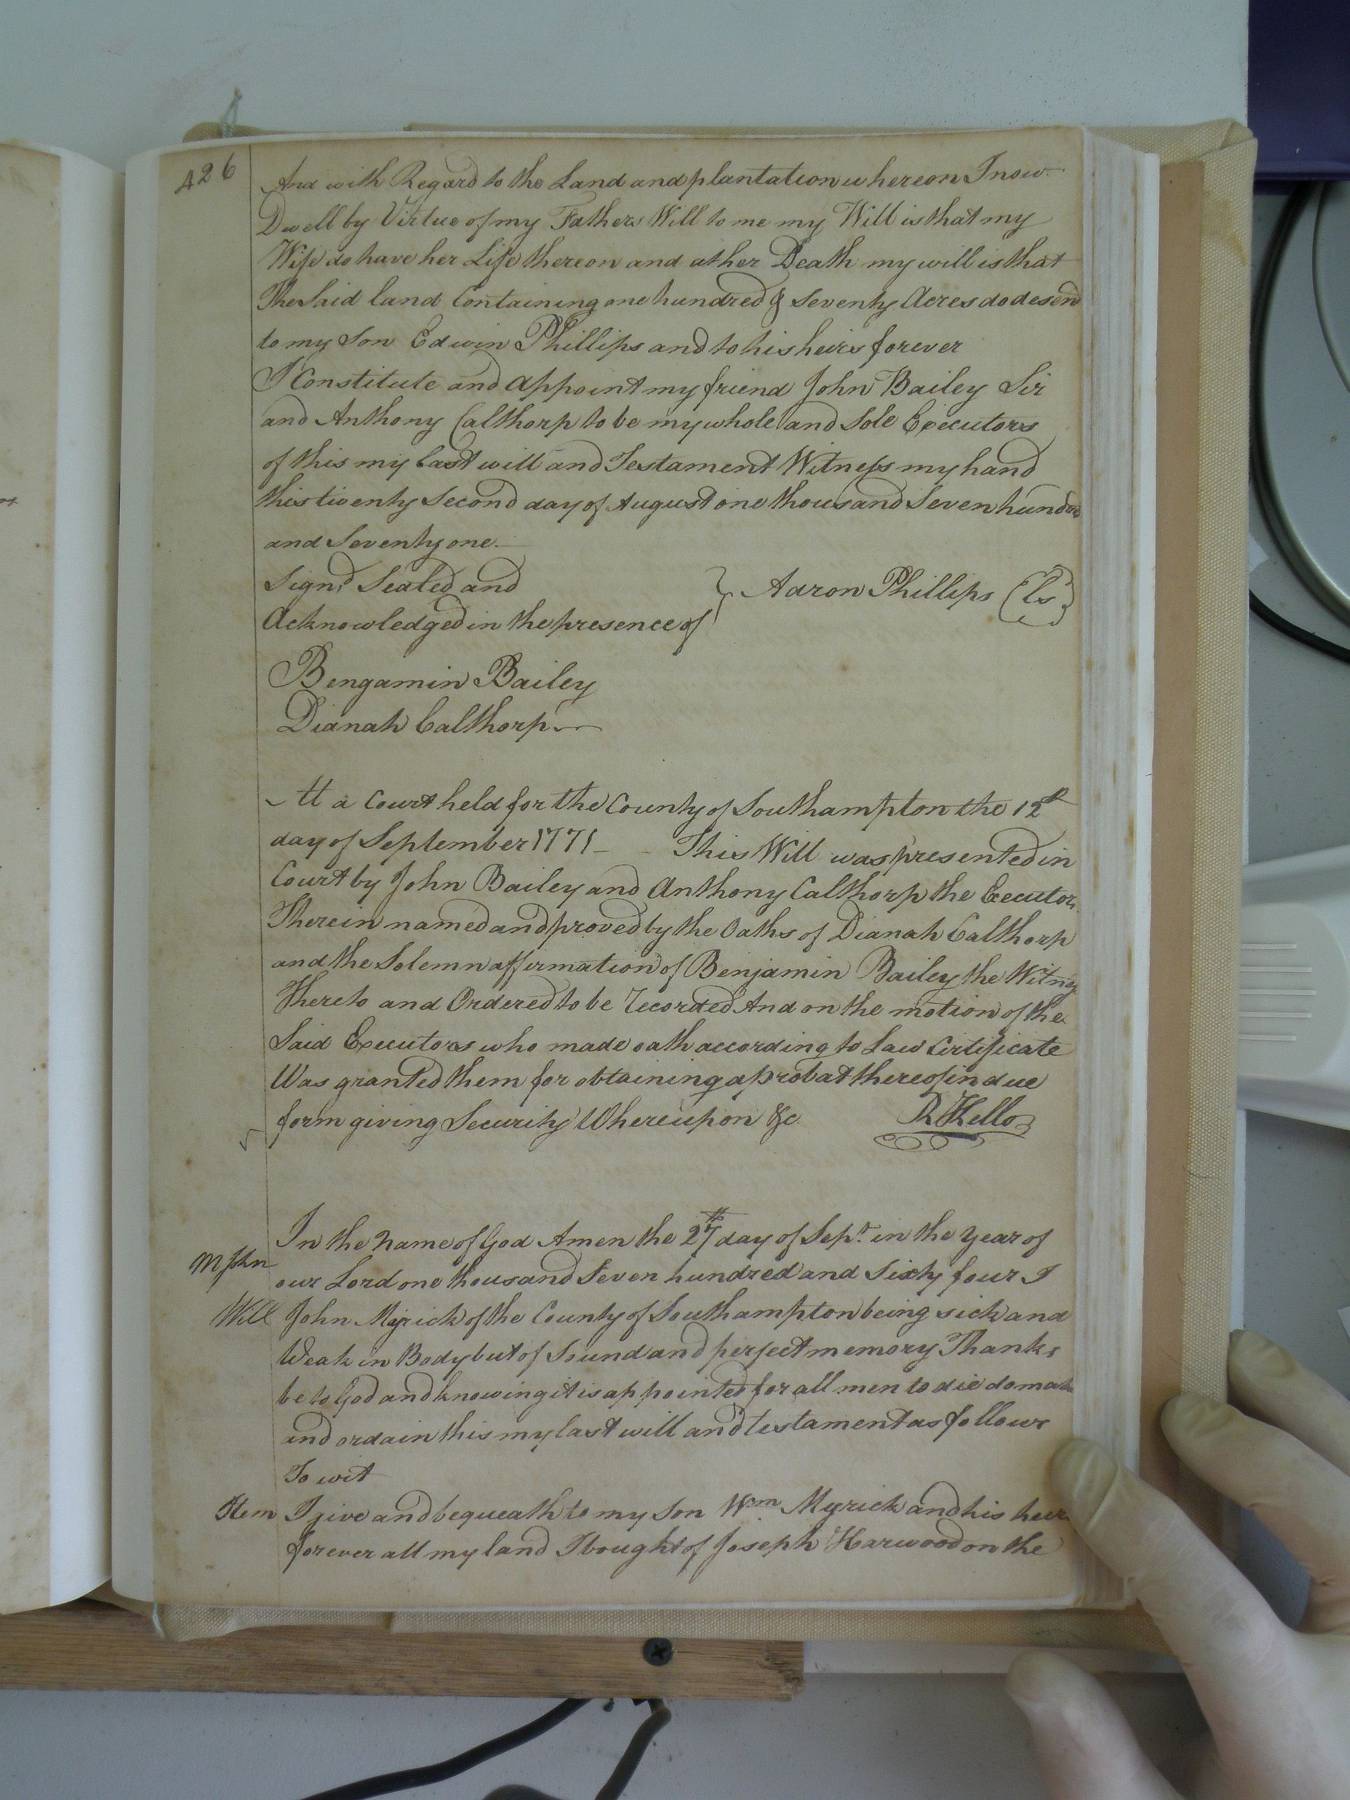 426
And with Regard to the Land and plantation whereon I now
Dwell by Virtue of my Fathers Will to me my Will is that my
Wife do have her Life thereon and at her Death my will is that
The Said land Containing one hundred & Seventy Acres do desend
to my Son Edwin Phillips and to his heirs forever
I Constitute and appoint my friend John Bailey Sir
and Anthony Calthorp to be my whole and Sole Executors
of this my Last will and Testament Witness my hand
this twenty Second day of August one thousand Seven hundred
and Seventy one.
Signd Sealed and
Acknowledged in the presence of } Aaron Phillips (Ls)
Bengamin Bailey
Dianah Calthorp
At a Court held for the County of Southampton the 12th
day of September 1771 This Will was presented in
Court by John Bailey and Anthony Calthorp the Executors
Therein named and proved by the Oaths of Dianah Calthorp
and the Solemn affirmation of Benjamin Bailey the Witness
Thereto and Ordered to be recorded And on the motion of the
Said Executors who made oath according to Law Certificate
Was granted them for obtaining a probat thereof in due
form giving Security Whereupon &c R Kello
In the Name of God Amen the 27th day of Sept. in the Year of
our Lord one thousand Seven hundred and Sixty four I
Will John Myrick of the County of Southampton being sick and
Weak in Body but of Sound and perfect memory Thanks
be to God and knowing it is appointed for all men to die do make
and ordain this my last will and testament as follows
To wit
Item I give and bequeath to my Son Wm Myrick and his heirs
forever all my land I bought of Joseph Harwood on the